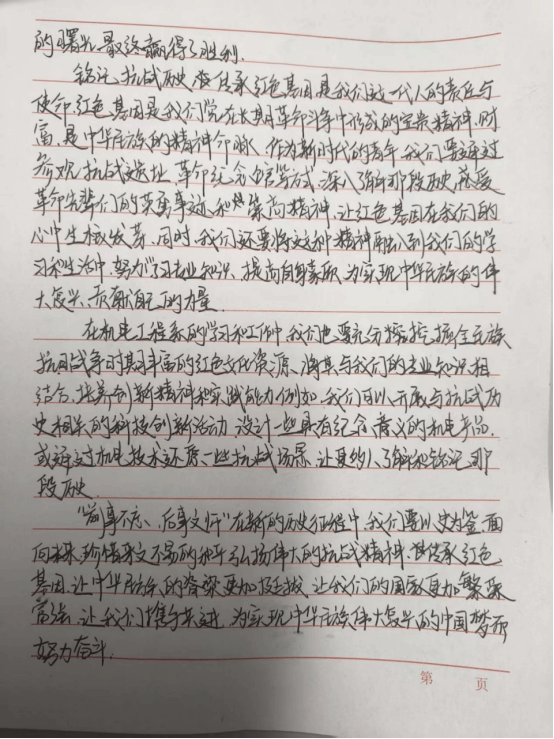 的曙光,最终赢得了胜利.
铭记抗战历史,传承红色基因是我们这一代人的责任与
使命,红色基因是我们党在长期革命斗争中形成的宝贵精神财
富,是中华民族的精神命脉,作为新时代的青年,我们要通过
参观抗战遗址、革命纪念馆等方式,深入了解那段历史,感受
革命先辈们的英勇事迹和崇高精神,让红色基因在我们的
心中生根发芽,同时,我们还要将这种精神融入到我们的学
习和生活中,努力学习专业知识,提高自身素质,为实现中华民族的伟
大复兴贡献自己的力量.
在机电工程系的学习和工作中,我们也要充分挖掘全民族
抗日战争时期丰富的红色文化资源,将其与我们的专业知识相
结合,培养创新精神和实践能力,例如,我们可以开展与抗战历
史相关的科技创新活动,设计一些具有纪念意义的机电产品,
或通过机电技术还原一些抗战场景,让更多人了解和铭记那
段历史.
“前事不忘、后事之师”在新的历史征程中,我们要以史为鉴,面
向未来,珍惜来之不易的和平,弘扬伟大的抗战精神,传承红色
基因,让中华民族的脊梁更加挺拔,让我们的国家更加繁荣
富强,让我们携手共进,为实现中华民族伟大复兴的中国梦而
努力奋斗.
第 页